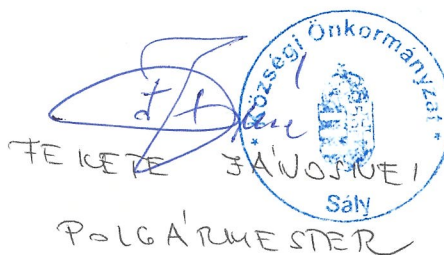 Községi Önkormányzat
Sály
FEKETE JÁNOSNÉ
POLGÁRMESTER